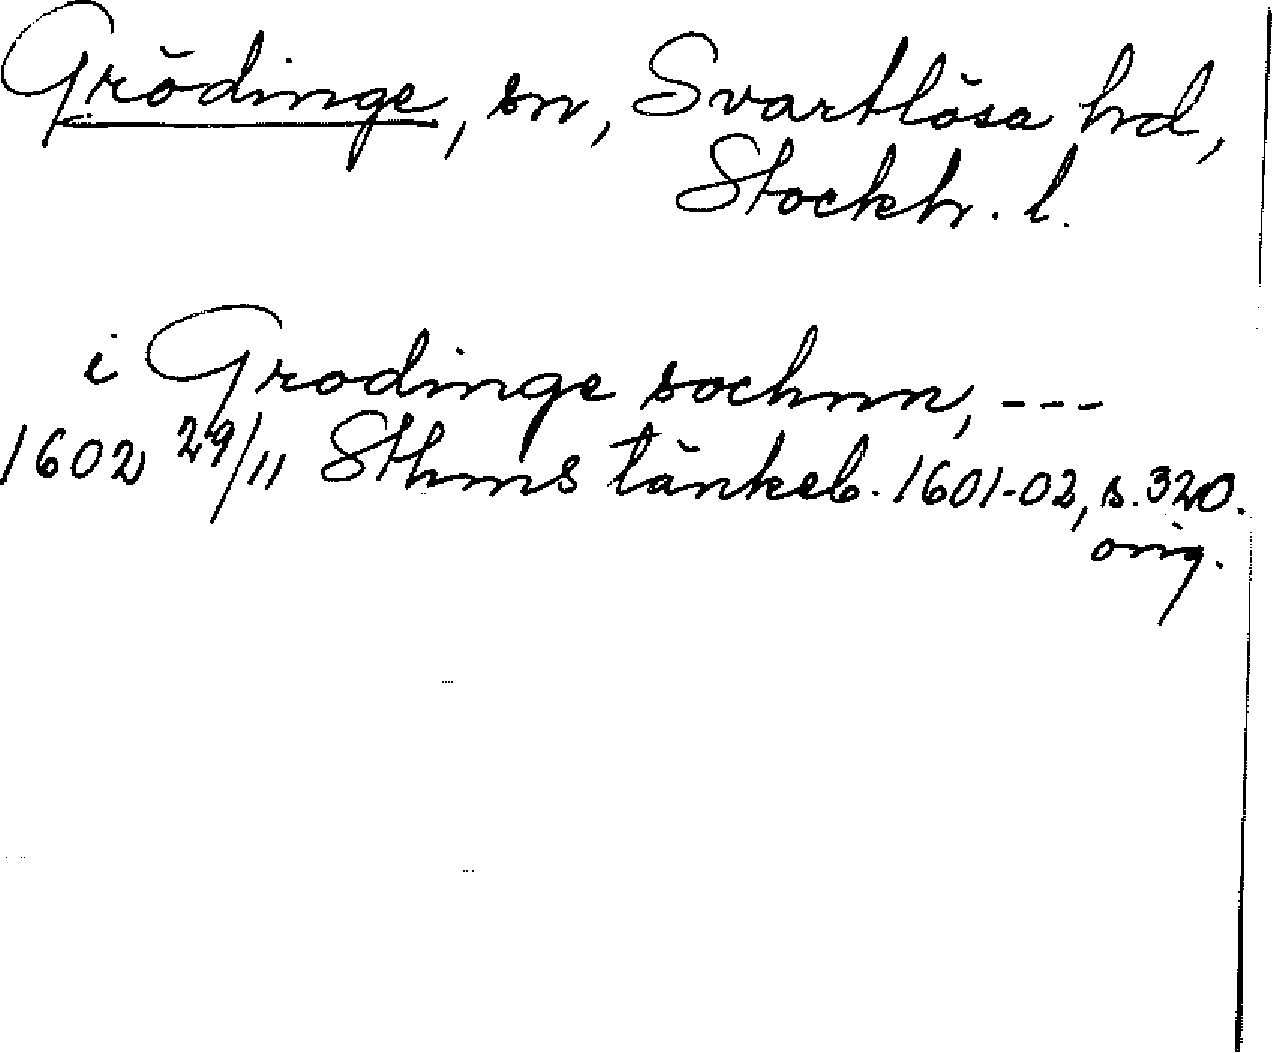 Grödinge, sn, Svartlösa hrd,
Stockh. l.
i Grodinge sochnn, ---
1602 29/11 Sthms tänkeb. 1601-02, s. 320.
orig.